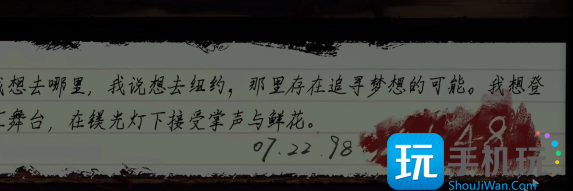 想去哪里，我说想去纽约，那里存在追寻梦想的可能。我想登
舞台，在镁光灯下接受掌声与鲜花。
07.22.98
48
玩 手机玩
ShouJiWan.Com